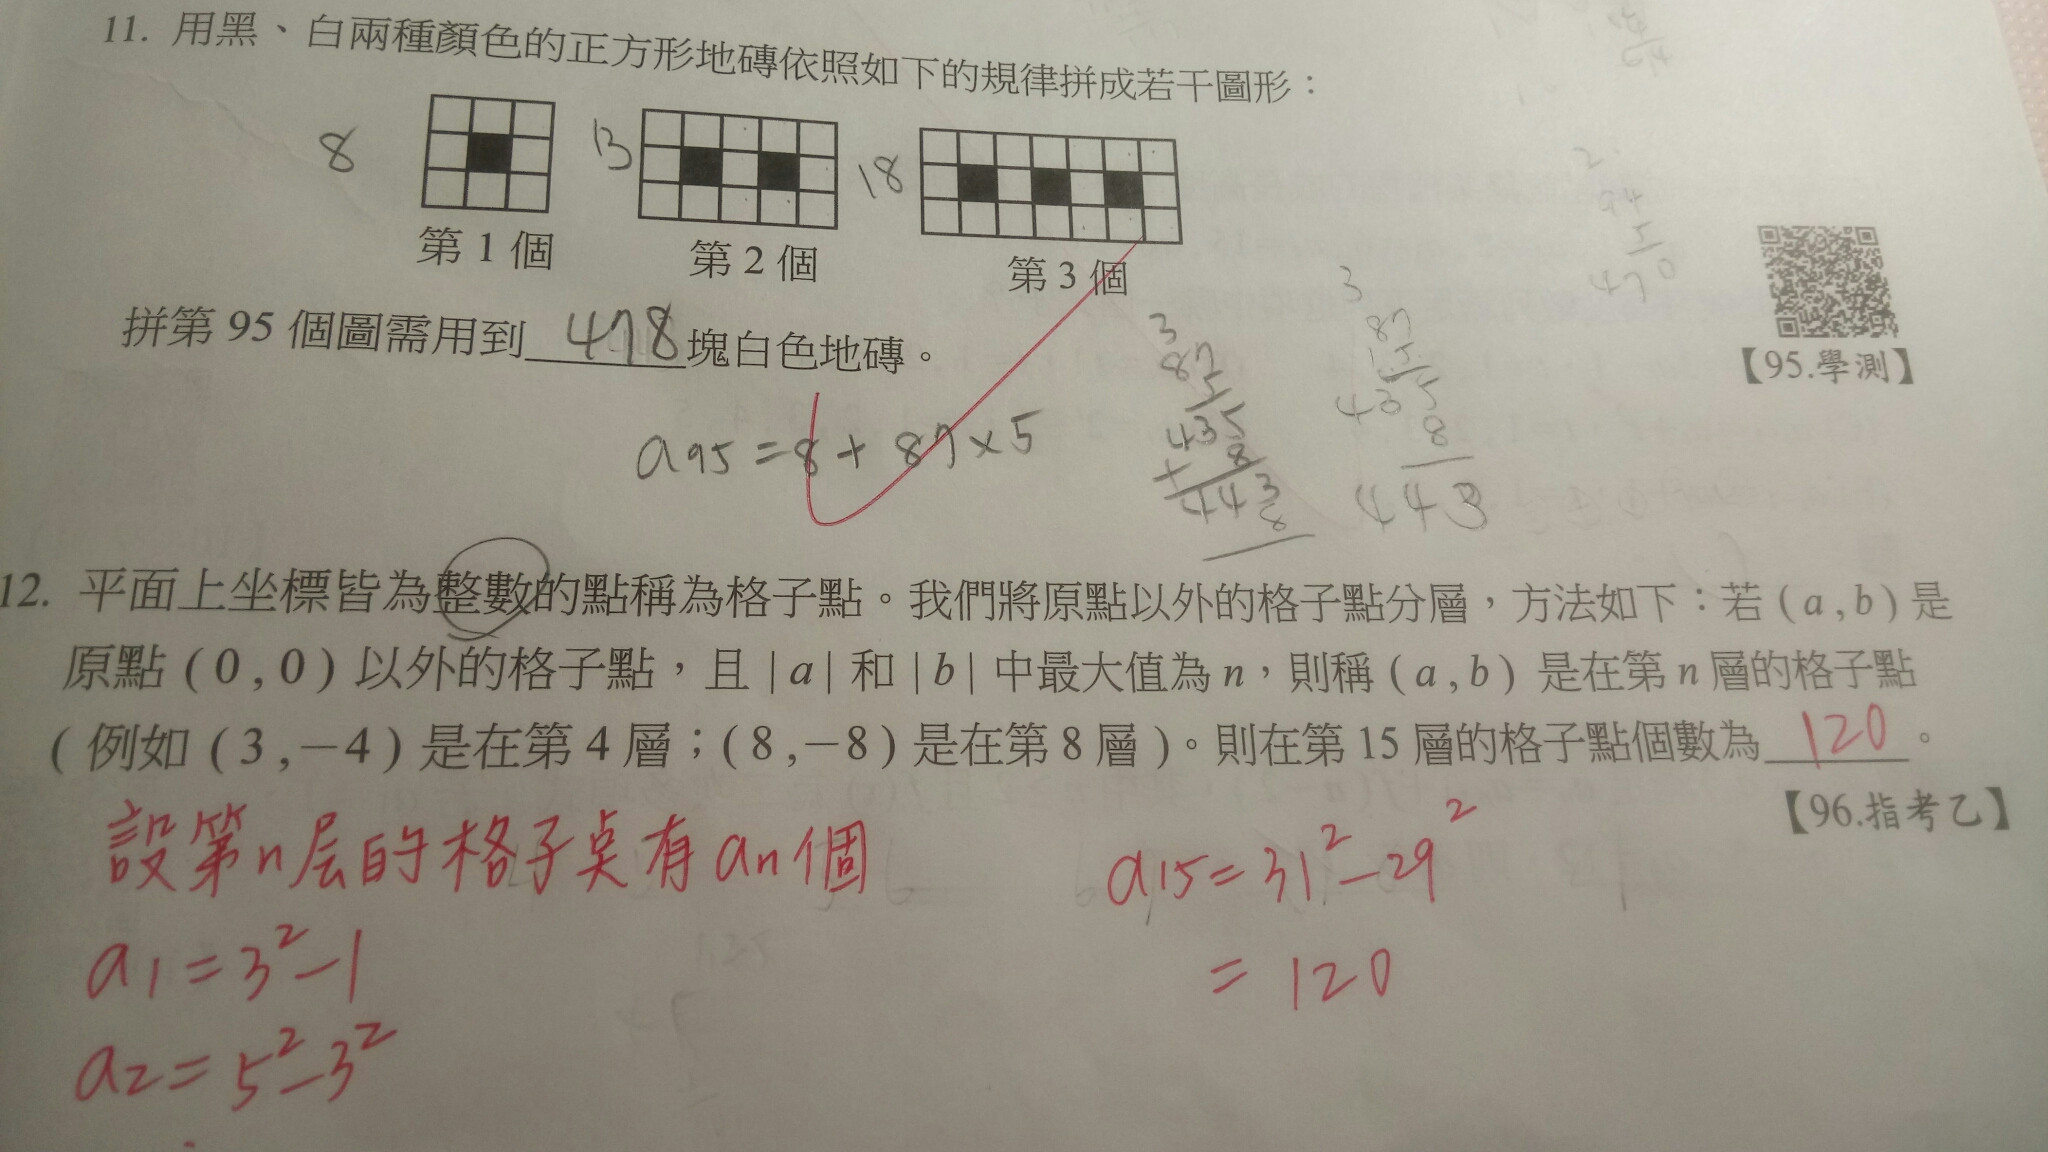 11. 用黑、白兩種顏色的正方形地磚依照如下的規律拼成若干圖形：
8 13 18
第 1 個 第 2 個 第 3 個
拼第 95 個圖需用到 478 塊白色地磚。
【95.學測】
a95 = 8 + 87 × 5
3
87
5
435
8
+
443
3
87
5
435
8
443
2
94
5
470
12. 平面上坐標皆為整數的點稱為格子點。我們將原點以外的格子點分層，方法如下：若 (a , b) 是
原點 (0 , 0) 以外的格子點，且 |a| 和 |b| 中最大值為 n，則稱 (a , b) 是在第 n 層的格子點
(例如 (3 , −4) 是在第 4 層；(8 , −8) 是在第 8 層)。則在第 15 層的格子點個數為 120 。
【96.指考乙】
設第n层的格子桌有an個
a1 = 3² − 1
a2 = 5² − 3²
a15 = 31² − 29²
= 120